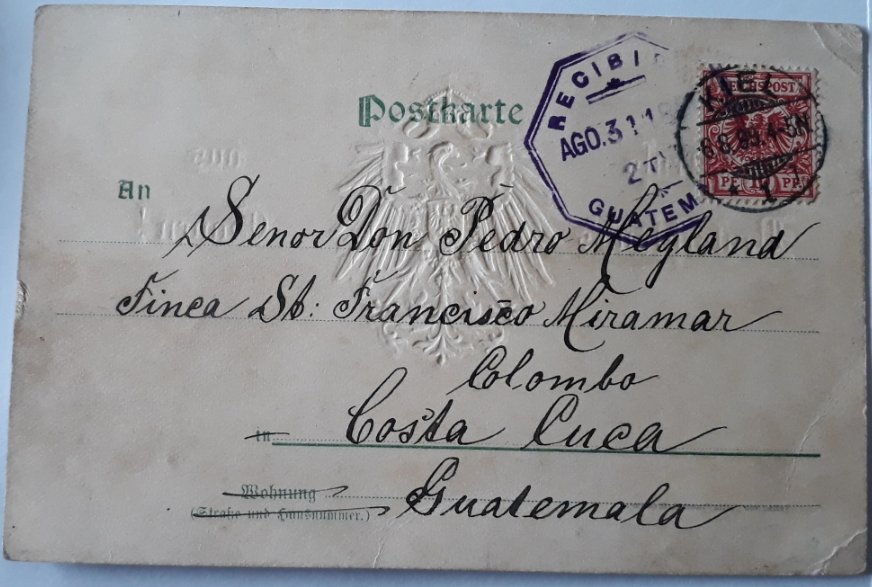 Postkarte
RECIBI
AGO. 31 18
2
GUATEM
REICHSPOST
PF 10 PF.
KIEL
6.8.99.4-5N
* 1
An
Senor Don Pedro Megland
Finca St: Francisco Miramar
Colombo
in Costa Cuca
Wohnung
Guatemala
(Straße und Hausnummer.)